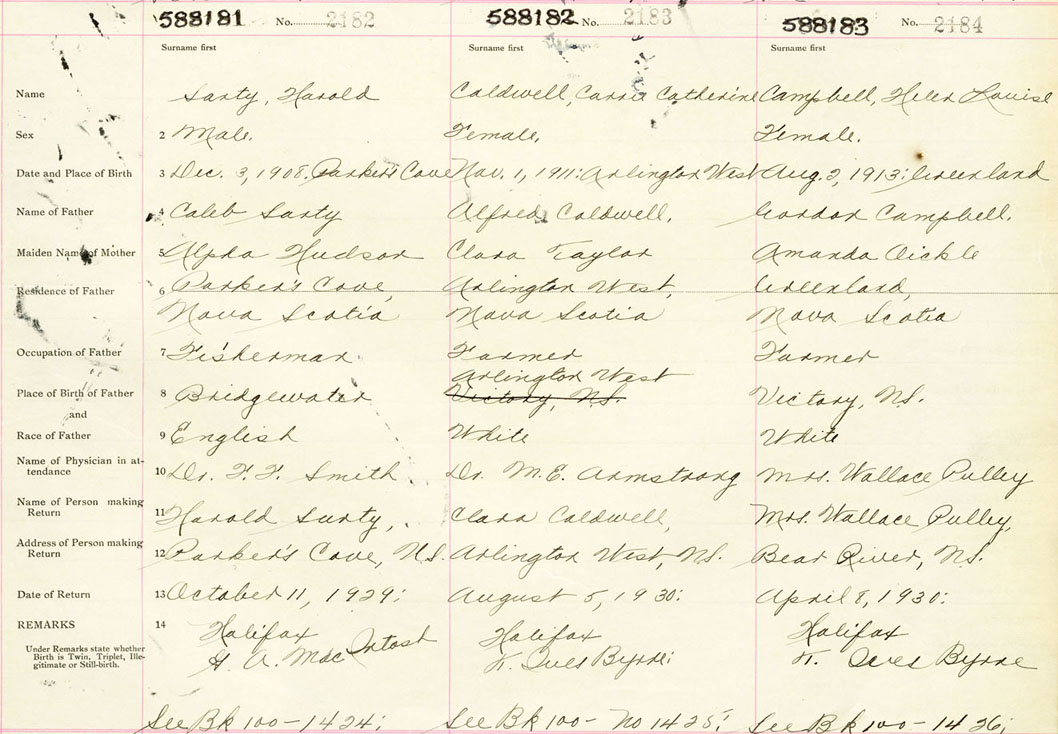 588181 No. 2182 588182 No. 2183 588183 No. 2184
Surname first Surname first Surname first
Name Sarty, Harold Caldwell, Carrie Catherine Campbell, Helen Louise
Sex 2 Male. Female. Female.
Date and Place of Birth 3 Dec. 3, 1908. Parker's Cove Nov. 1, 1911: Arlington West Aug. 2, 1913: Greenland
Name of Father 4 Caleb Sarty Alfred Caldwell, Gordon Campbell.
Maiden Name of Mother 5 Alpha Hudson Clara Taylor Amanda Dickle
Residence of Father 6 Parker's Cove, Arlington West, Greenland,
Nova Scotia Nova Scotia Nova Scotia
Occupation of Father 7 Fisherman Farmer Farmer
Arlington West
Place of Birth of Father 8 Bridgewater Victory, N.S. Victory, N.S.
and
Race of Father 9 English White White
Name of Physician in at-
tendance 10 Dr. F. F. Smith Dr. M.E. Armstrong Mrs. Wallace Pulley
Name of Person making
Return 11 Harold Sarty, Clara Caldwell, Mrs. Wallace Pulley,
Address of Person making
Return 12 Parker's Cove, N.S. Arlington West, N.S. Bear River, N.S.
Date of Return 13 October 11, 1929: August 5, 1930: April 8, 1930:
REMARKS 14 Halifax Halifax Halifax
Under Remarks state whether
Birth is Twin, Triplet, Ille-
gitimate or Still-birth.
A. MacIntosh Ives Byrne: Ives Byrne
See Bk 100-1424: See Bk 100- No 1425: See Bk 100-1426: